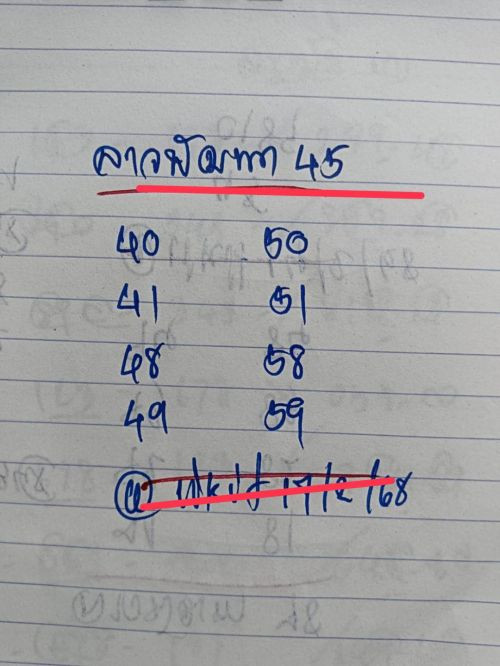 ลาวพัฒนา 45
40 50
41 51
48 58
49 59
17/2/68